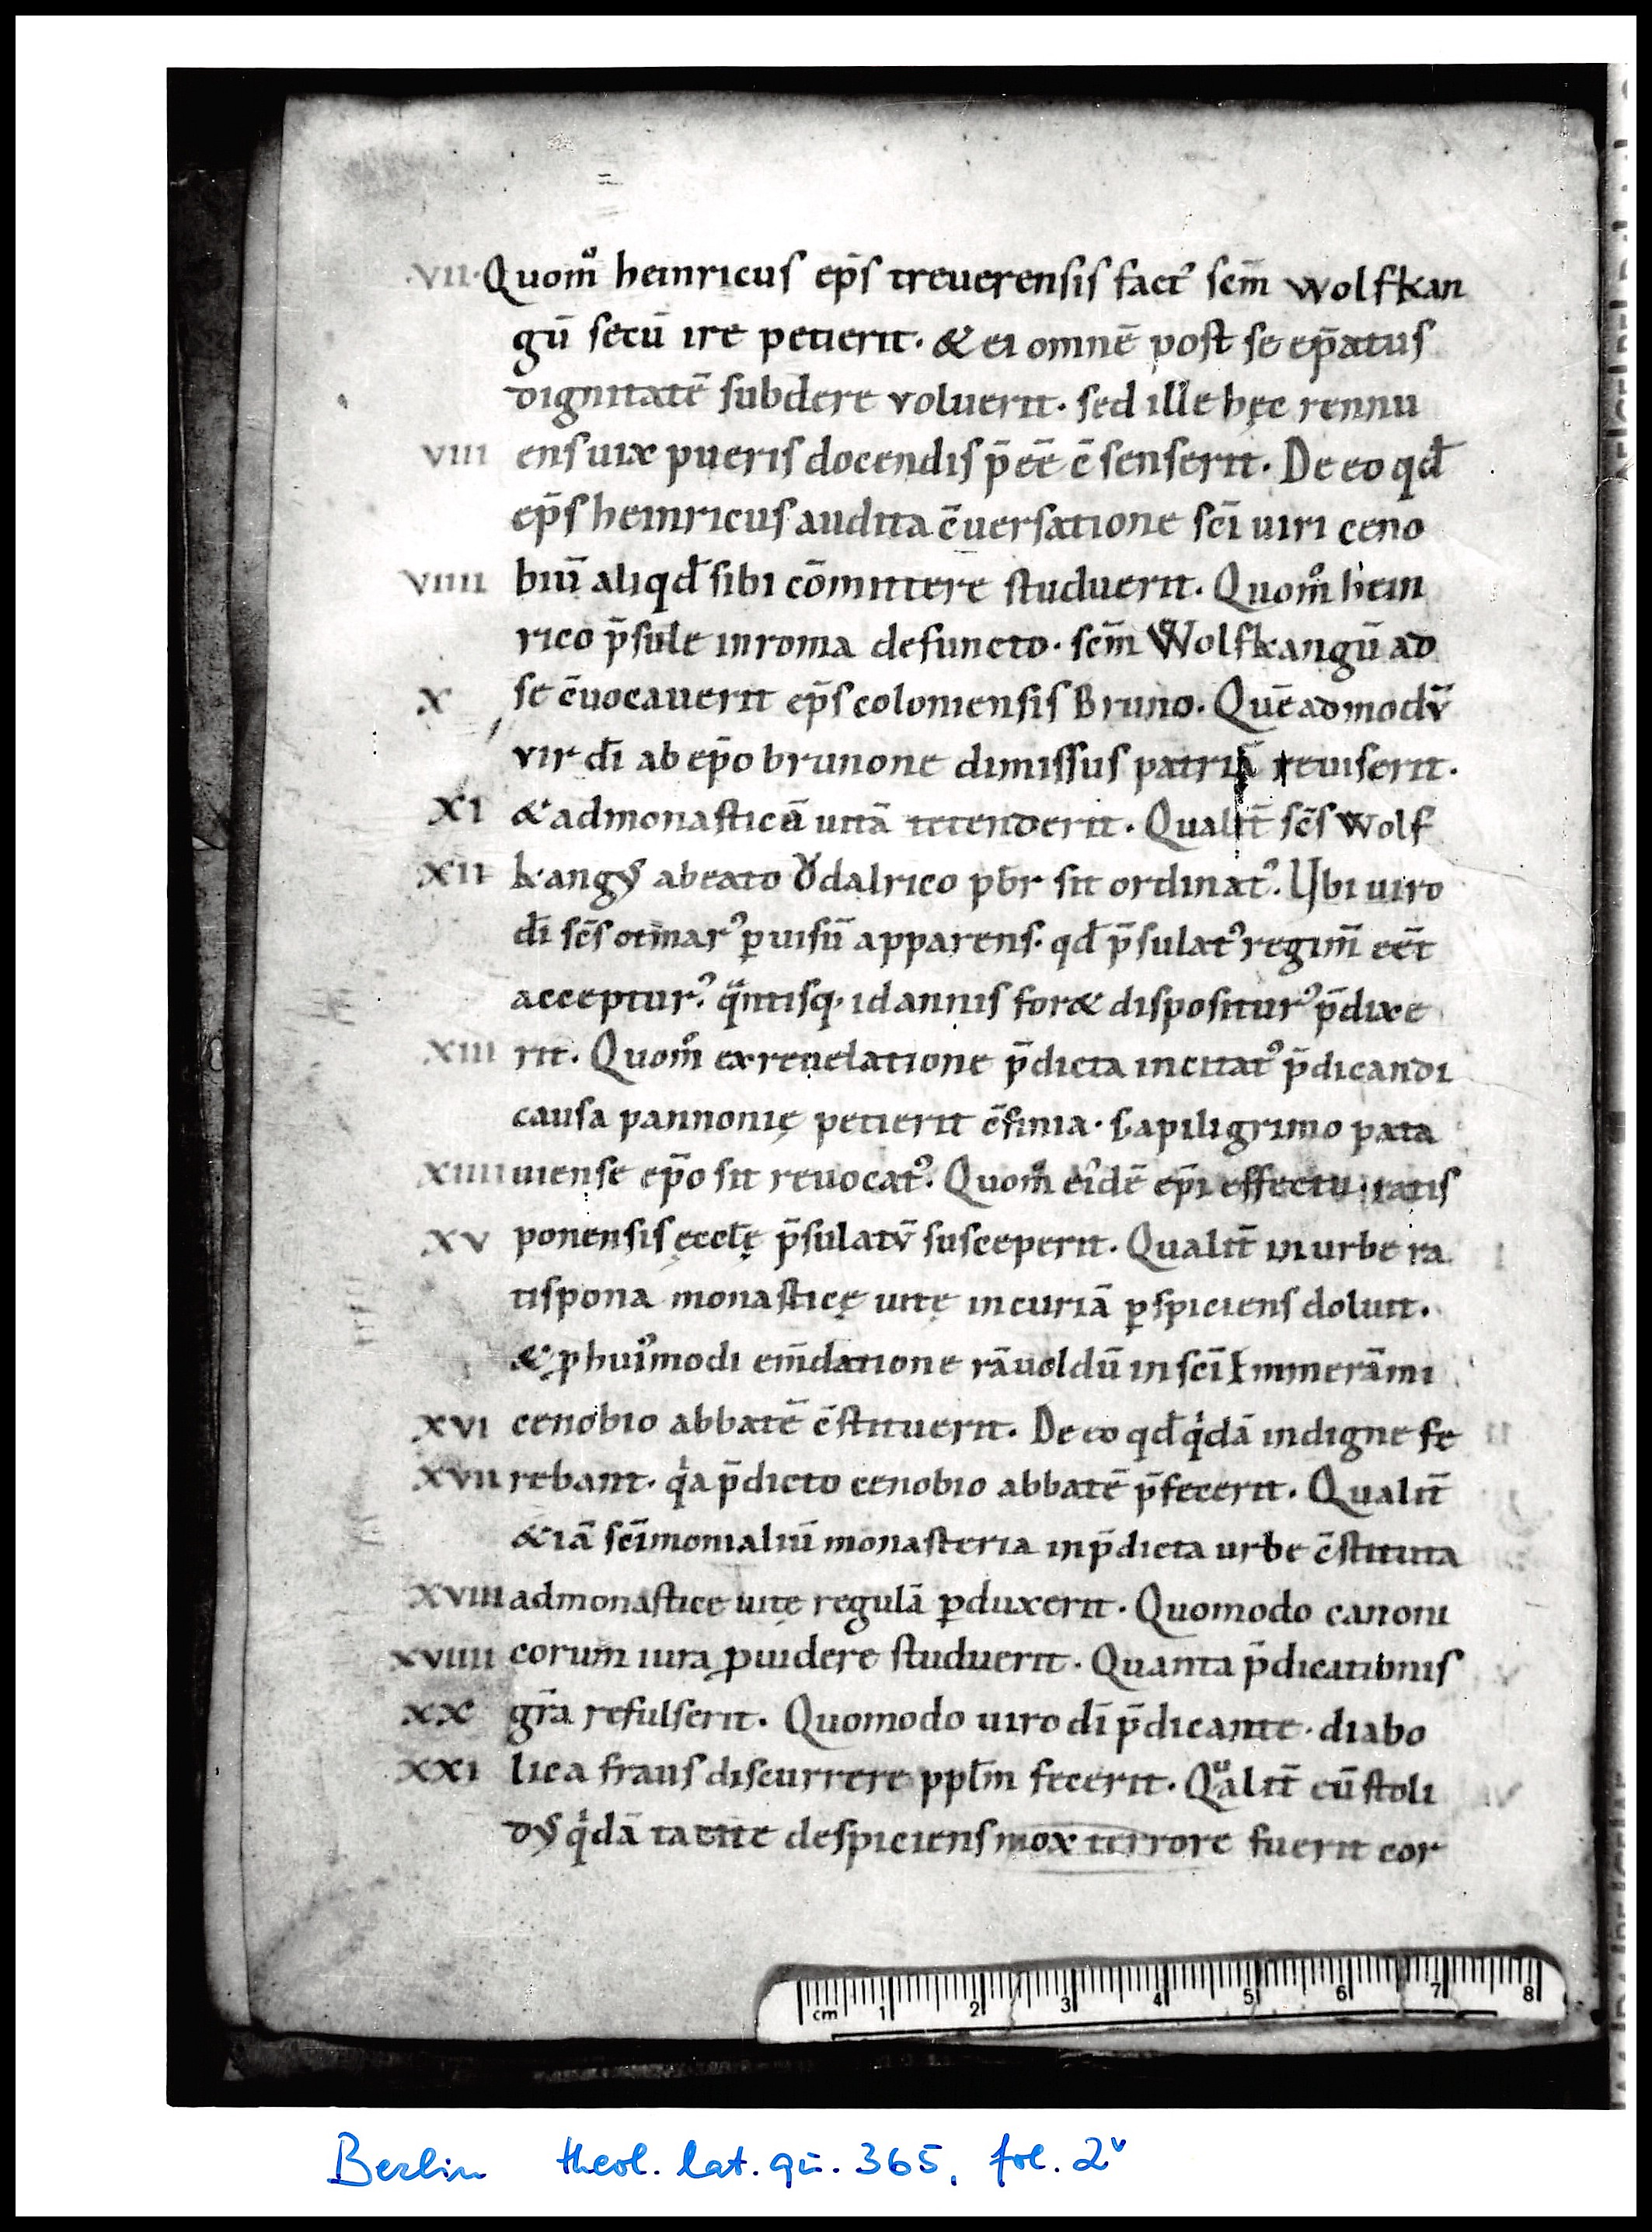 .VII. Quom̊ heinricus ep̄s treuerensis fact᾽ sc̄m wolfkan
gū secū ire petierit. & ei omnē post se ep̄atus
dignitatē subdere voluerit. sed ille hęc rennu
VIII ens uix pueris docendis p̄ee᷒̄ c̄senserit. De eo qđ
ep̄s heinricus audita c̄uersatione sc̄i uiri ceno
VIIII biū aliqđ sibi cōmittere studuerit. Quom̊ hein
rico p̄sule in roma defuncto. sc̄m Wolfkangū ad
X se c̄uocauerit ep̄s coloniensis Bruno. Quē ad modv̄
vir dī ab ep̄o brunone dimissus patriā reuiserit.
XI & ad monasticā uitā tetenderit. Qualit̄ sc̄s wolf
XII kangꝰ a beato Ǒdalrico pb̄r sit ordinat᾽. Ubi uiro
dī sc̄s otmar᾽ ꝑ uisū apparens. qđ p̄sulat᾽ regim̄ eēt
acceptur᾽. qͣntisq; id annis for& dispositur᾽ p̄dixe
XIII rit. Quom̊ ex reuelatione p̄dicta incitat᾽ p̄dicandi
causa pannonię petierit c̄finia. s; a piligrimo pata
XIIII uiense ep̄o sit reuocat᾽. Quom̊ ei᾽dē ep̄i effectu. ratis
XV ponensis ęccłę p̄sulatv̄ susceperit. Qualit̄ in urbe ra
tispona monasticę uitę incuriā ꝑspiciens doluit.
& ꝓ hui᾽modi em̄datione rāuoldū in sc̄i Emmerāmi
XVI cenobio abbatē c̄stituerit. De eo qđ qⁱdā indigne fe
XVII rebant. qⁱa p̄dicto cenobio abbatē p̄fecerit. Qualit̄
& iā sc̄imonialiū monasteria in p̄dicta urbe c̄stituta
XVIII ad monastice uitę regulā ꝑduxerit. Quomodo canoni
XVIIII corum iura ꝓuidere studuerit. Quanta p̄dicationis
XX gr̄a refulserit. Quomodo uiro dī p̄dicante. diabo
XXI lica fraus discurrere ppłm fecerit. Qͧalit̄ eū stoli
dꝰ qⁱdā tacite despiciens mox terrore fuerit cor
cm 1 2 3 4 5 6 7 8
Berlin theol. lat. qu. 365, fol. 2ᵛ